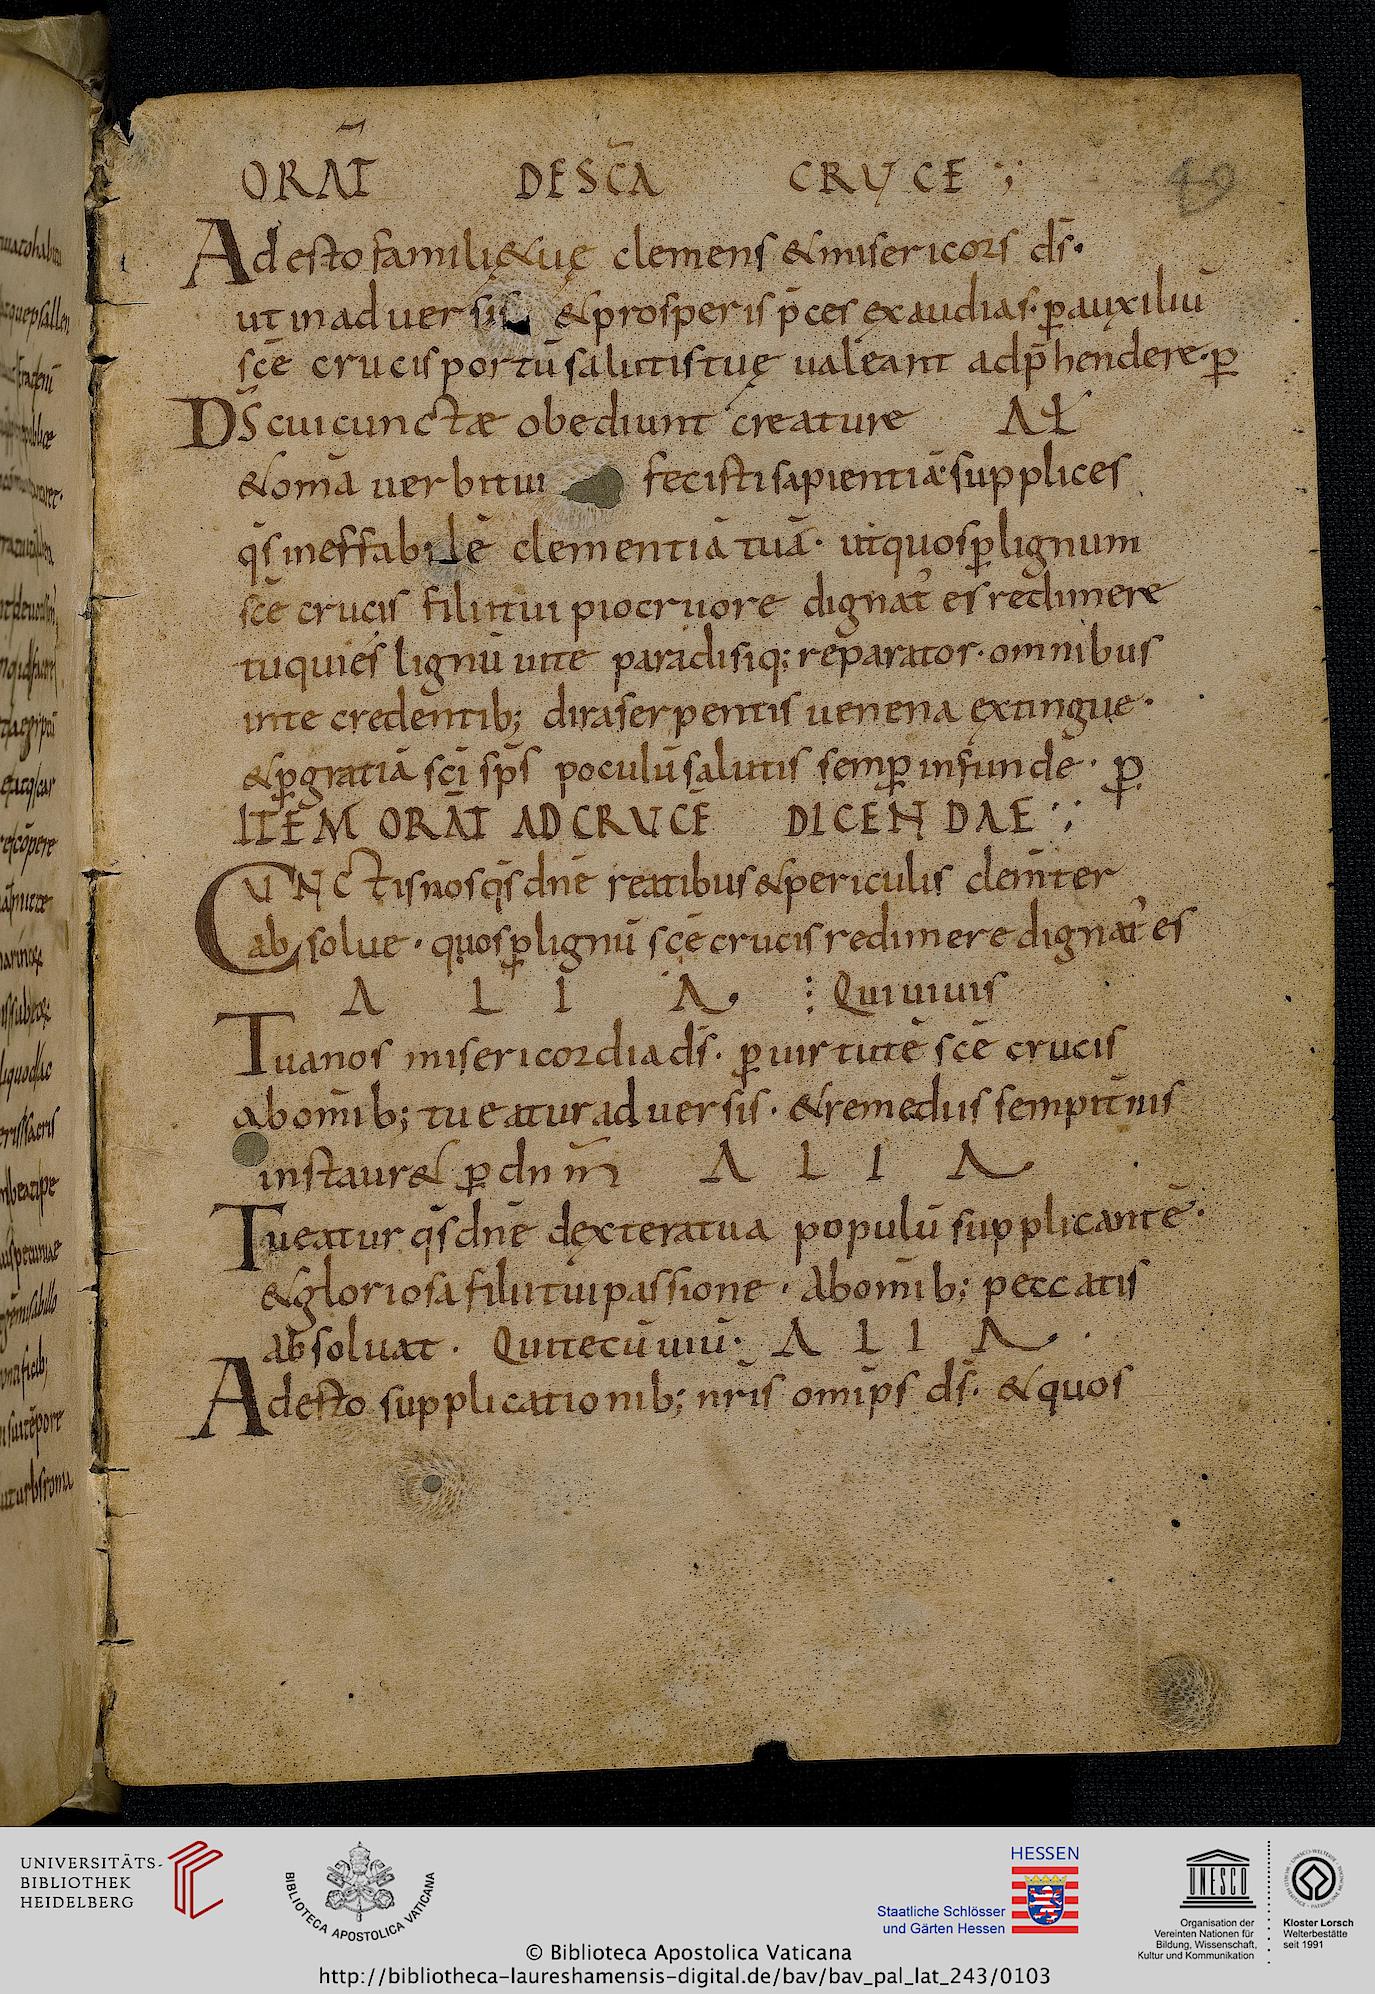 ORAT̄ DE SC̄A CRUCE
49
Adesto familię tuę clemens & misericors ds̄.
ut in aduersis & prosperis p̄ces exaudias. ꝑ auxiliū
sc̄e crucis portū salutis tuę ualeant adp̄hendere. ꝑ
DS̄ cui cunctæ obediunt creature AŁ
& om̄a uerbi tui fecisti sapientiā. supplices
qs̄ ineffabilē clementiā tuā. ut quos ꝑ lignum
sc̄e crucis filii tui pio cruore dignat' es redimere
tu qui es lignū uite paradisiq; reparator. omnibus
in te credentib; dira serpentis uenena extingue.
& ꝑ gratiā sc̄i sp̄s poculū salutis semꝑ infunde. ꝑ
ITEM ORAT̄ AD CRUCĒ DICENDAE
CUNCtis nos qs̄ dn̄e reatibus & periculis clem̄ter
absolue. quos ꝑ lignū sc̄e crucis redimere dignat' es
ALIA. Qui uiuis
Tua nos misericordia ds̄. ꝑ uirtutē sc̄e crucis
ab om̄ib; tueatur aduersis. & remediis sempit̄nis
instaur& ꝑ dn̄m ALIA
Tueatur qs̄ dn̄e dextera tua populū supplicantē.
& gloriosa filii tui passione. ab om̄ib; peccatis
absoluat. Qui tecū uiu. ALIA.
Adesto supplicationib; nr̄is omīps ds̄. & quos
UNIVERSITÄTS-
BIBLIOTHEK
HEIDELBERG
BIBLIOTECA APOSTOLICA VATICANA
HESSEN
Staatliche Schlösser
und Gärten Hessen
UNESCO
Organisation der
Vereinten Nationen für
Bildung, Wissenschaft,
Kultur und Kommunikation
Kloster Lorsch
Welterbestätte
seit 1991
© Biblioteca Apostolica Vaticana
http://bibliotheca-laureshamensis-digital.de/bav/bav_pal_lat_243/0103